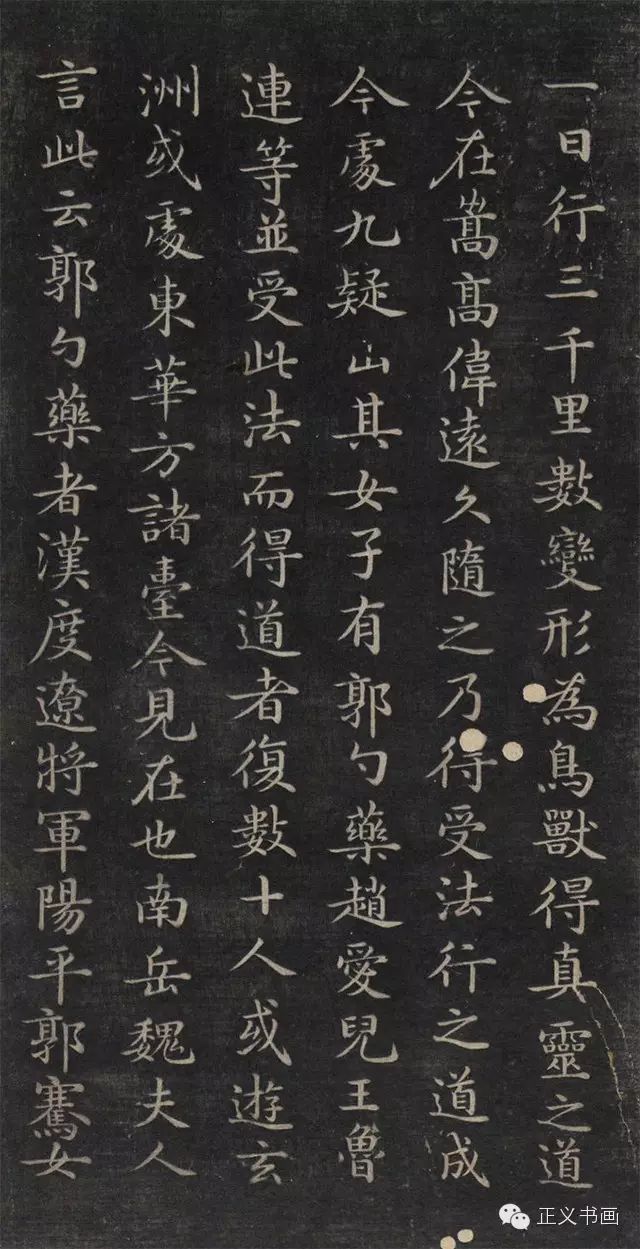 一日行三千里數變形為鳥獸得真靈之道
今在嵩髙偉遠久隨之乃得受法行之道成
今處九疑山其女子有郭勺藥趙愛兒王魯
連等並受此法而得道者復數十人或遊玄
洲或處東華方諸臺今見在也南岳魏夫人
言此云郭勺藥者漢度遼將軍陽平郭騫女
正义书画